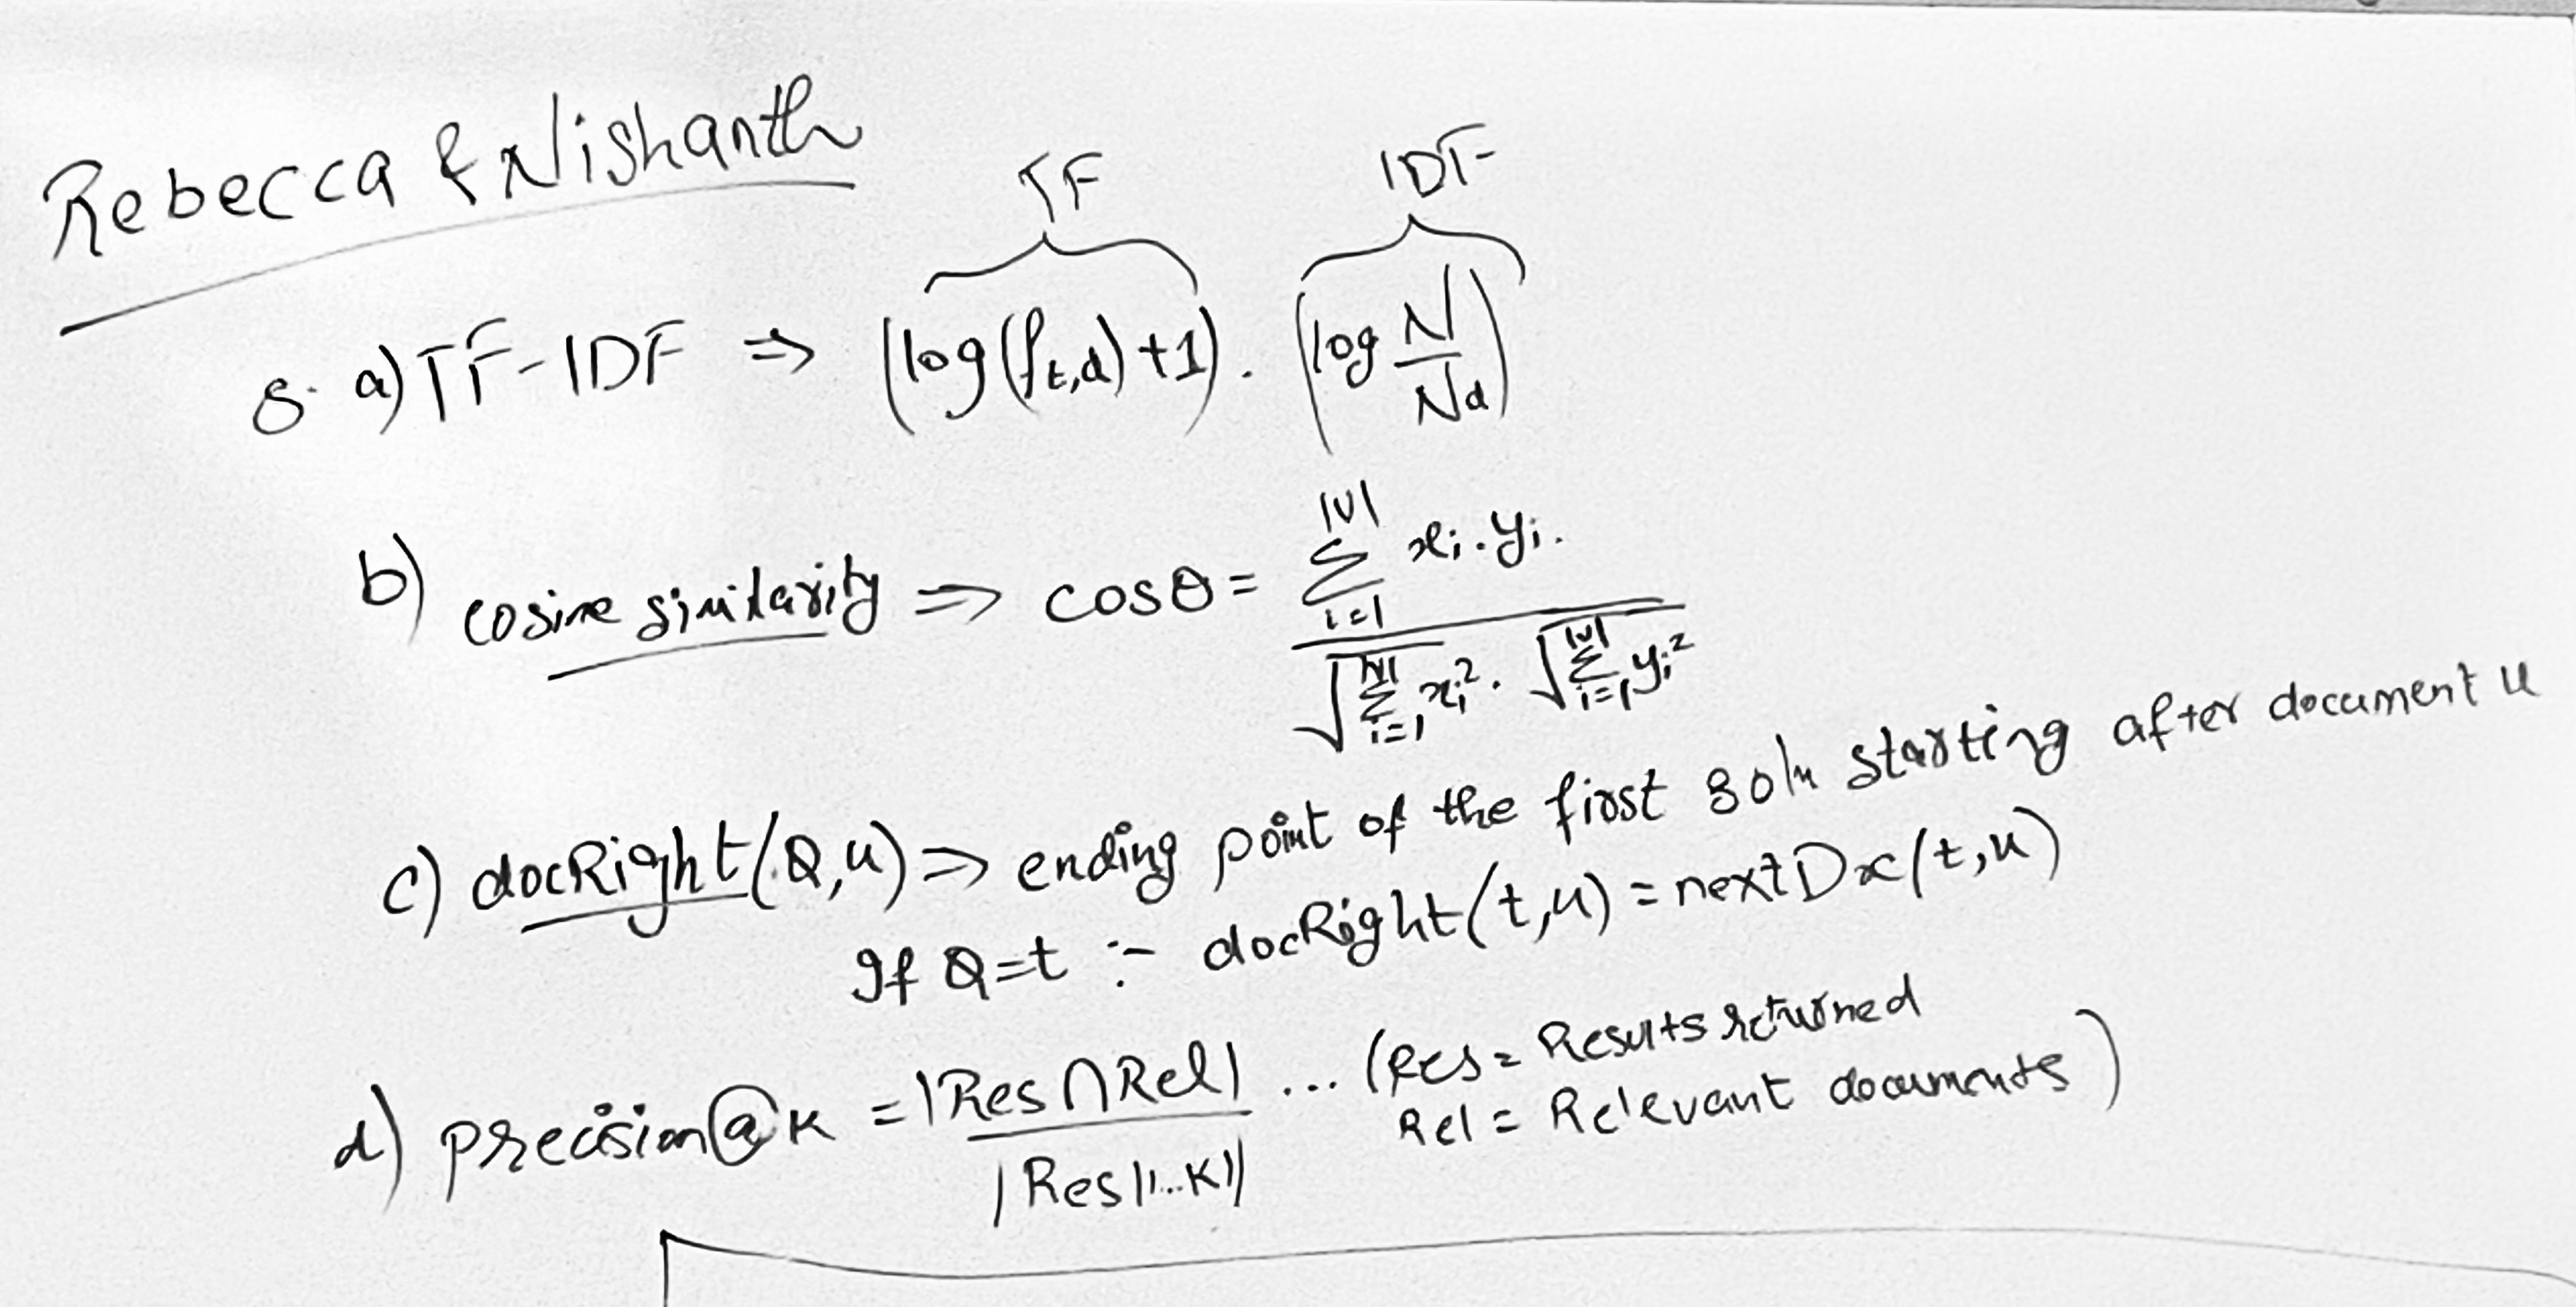 Rebecca & Nishanth
TF IDF
8. a) TF-IDF ⇒ (log(f_t,d)+1) . (log N/N_d)
b) cosine similarity ⇒ cosθ = ∑_{i=1}^{|V|} x_i . y_i . / √(∑_{i=1}^{|V|} x_i²) . √(∑_{i=1}^{|V|} y_i²)
c) docRight(Q,u) ⇒ ending point of the first soln starting after document u
If Q=t :- docRight(t,u) = nextDoc(t,u)
d) precision@K = |Res ∩ Rel| / |Res|1...K|| ... (Res = Results returned
Rel = Relevant documents)